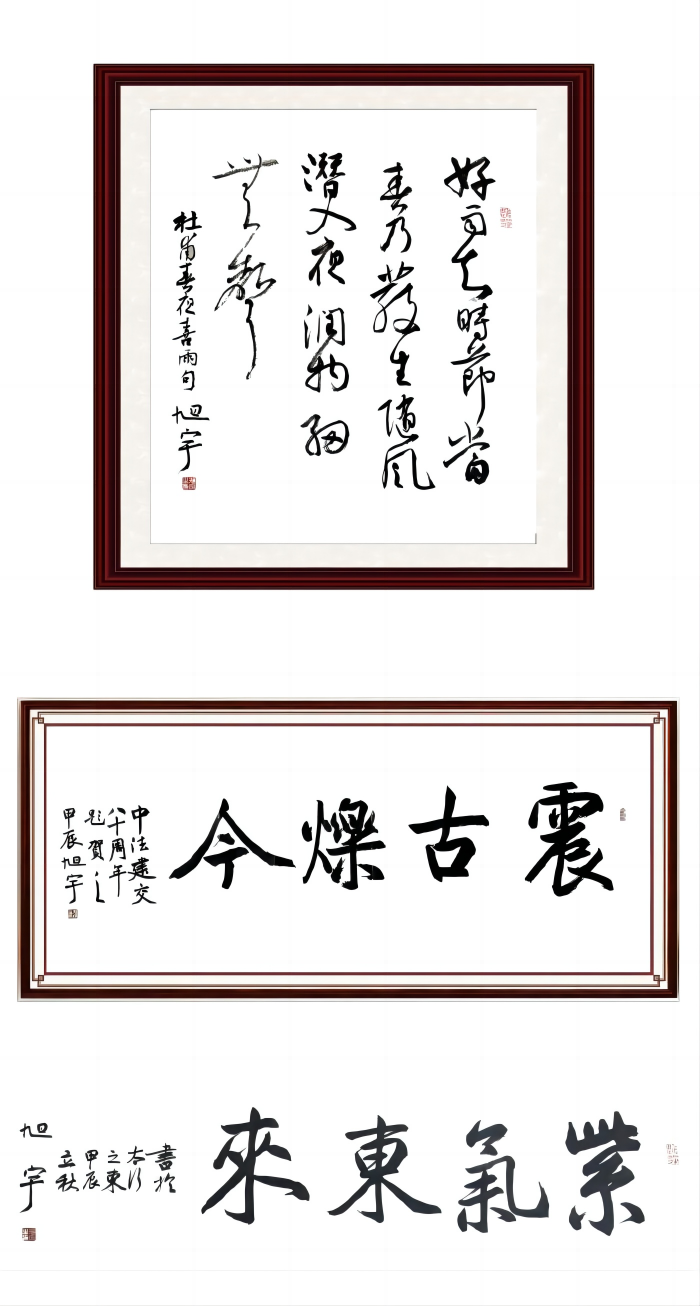 好雨知時節當
春乃發生隨風
潛入夜潤物細
無聲
杜甫春夜喜雨句
旭宇
震古爍今
中法建交
八十周年
題賀之
甲辰旭宇
紫氣東來
書於
太行
之東
甲辰
立秋
旭宇